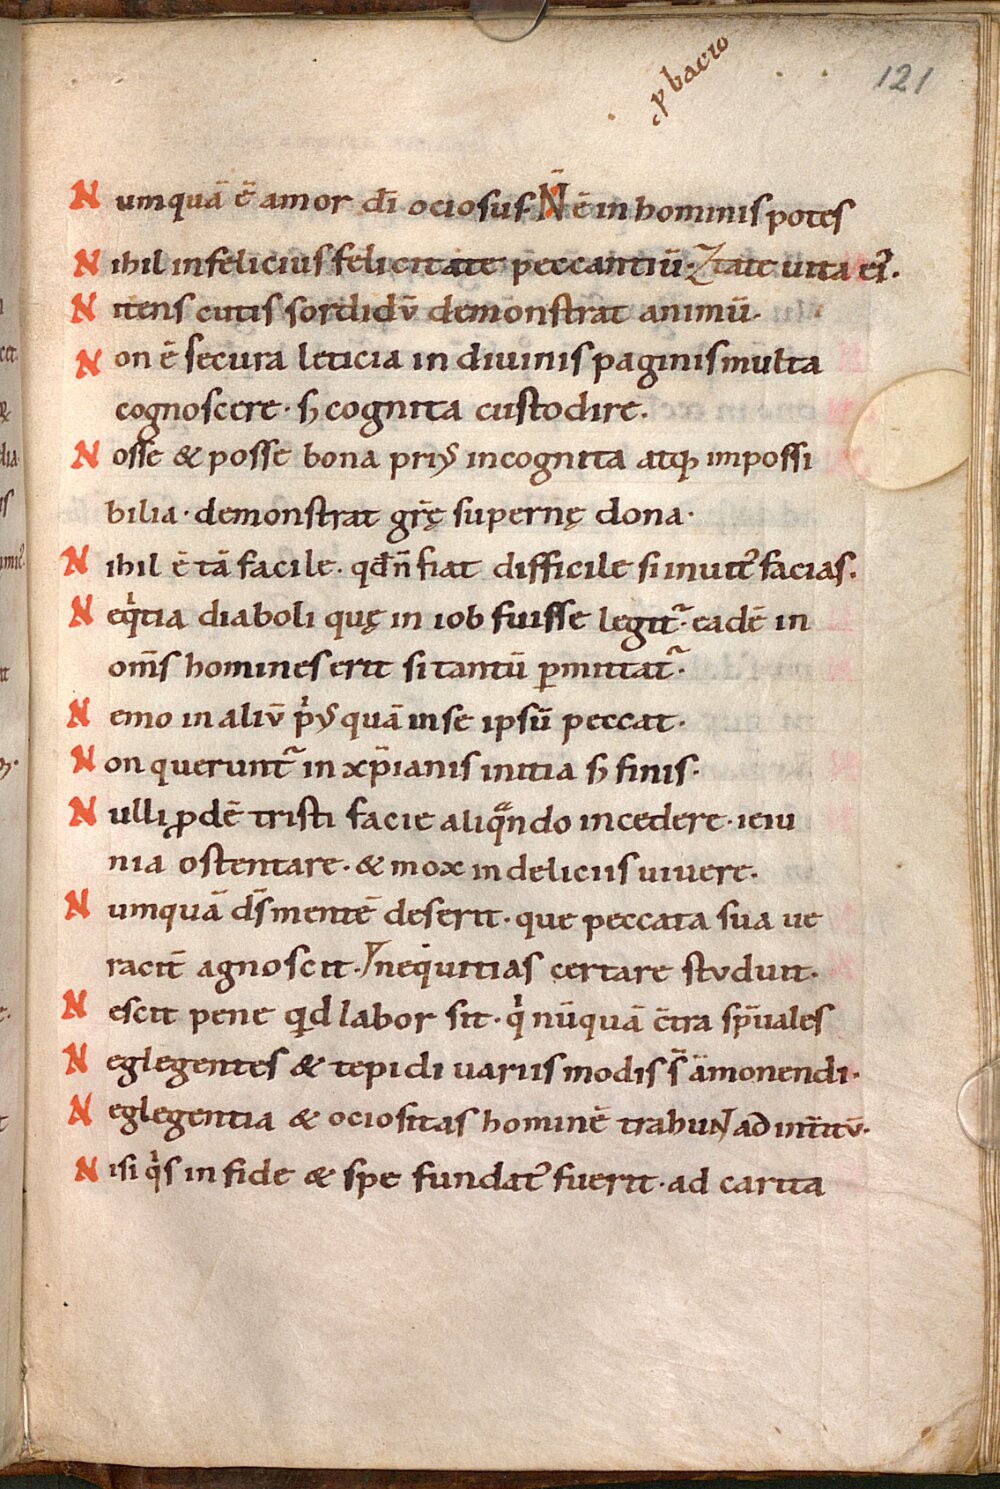 ꝓ bacio
121
Numquā ē amor dī ociosus. N̄ ē in hominis potes
Nihil infelicius felicitate peccantiū. tate uita eiꝰ.
Nitens cutis sordidū demonstrat animū.
Non ē secura leticia in diuinis paginis multa
cognoscere. ſꝫ cognita custodire.
Nosse & posse bona priꝰ incognita atqꝫ impossi
bilia. demonstrat grę̄ supernę dona.
Nihil ē tā facile. qđ n̄ fiat difficile si inuitꝰ facias.
Neqͥtia diaboli quę in iob fuisse legit᷑. eadē in
om̄s homines erit si tantū ꝑmittat᷑.
Nemo in aliū pͥꝰ quā in se ipsū peccat.
Non querunt᷑ in xp̄ianis initia ſꝫ finis.
Nulli ꝓdē tristi facie aliqͣndo incedere. ieiu
nia ostentare. & mox in deliciis uiuere.
Numquā d̄s mentē deserit. que peccata sua ue
racit̄ agnoscit. neqͥtias certare studuit.
Nescit pene qͥd labor sit. qͥ nūquā c̄tra sp̄uales
Neglegentes & tepidi uariis modis s̄ āmonendi.
Neglegentia & ociositas hominē trahunt ad int̄itū.
Nisi qͥs in fide & spe fundatꝰ fuerit. ad carita